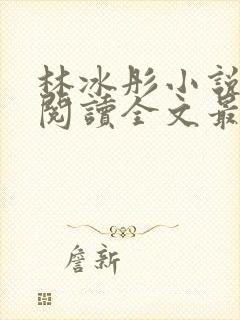 林冰彤小說
閱讀全文最
詹新